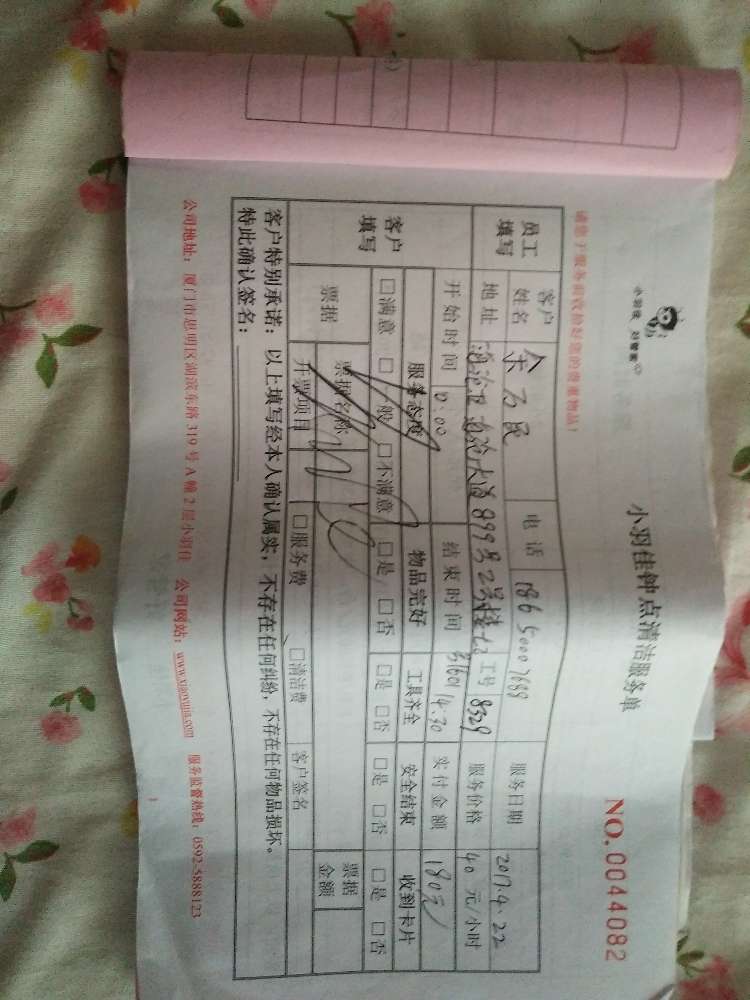 小羽佳 好管家
小羽佳钟点清洁服务单
NO.0044082
请您于服务前收拾好您的贵重物品!
员工填写 客户姓名 余万民 电话 186 5000 7688 服务日期 2017.4.22
地址 海沧区海沧大道899号2号楼 工号 8329 服务价格 40元/小时
开始时间 10:00 结束时间 14:30 实付金额 180元
客户填写 服务态度 物品完好 工具齐全 安全结束 收到卡片
□满意 □一般 □不满意 □是 □否 □是 □否 □是 □否 □是 □否
票据 票据名称 票据金额
开票项目 □服务费 □清洁费 客户签名
客户特别承诺:以上填写经本人确认属实,不存在任何纠纷,不存在任何物品损坏。
特此确认签名:
公司地址:厦门市思明区湖滨东路319号A幢2层小羽佳 公司网站:www.xiaoyujia.com 服务监督热线:0592-5888123